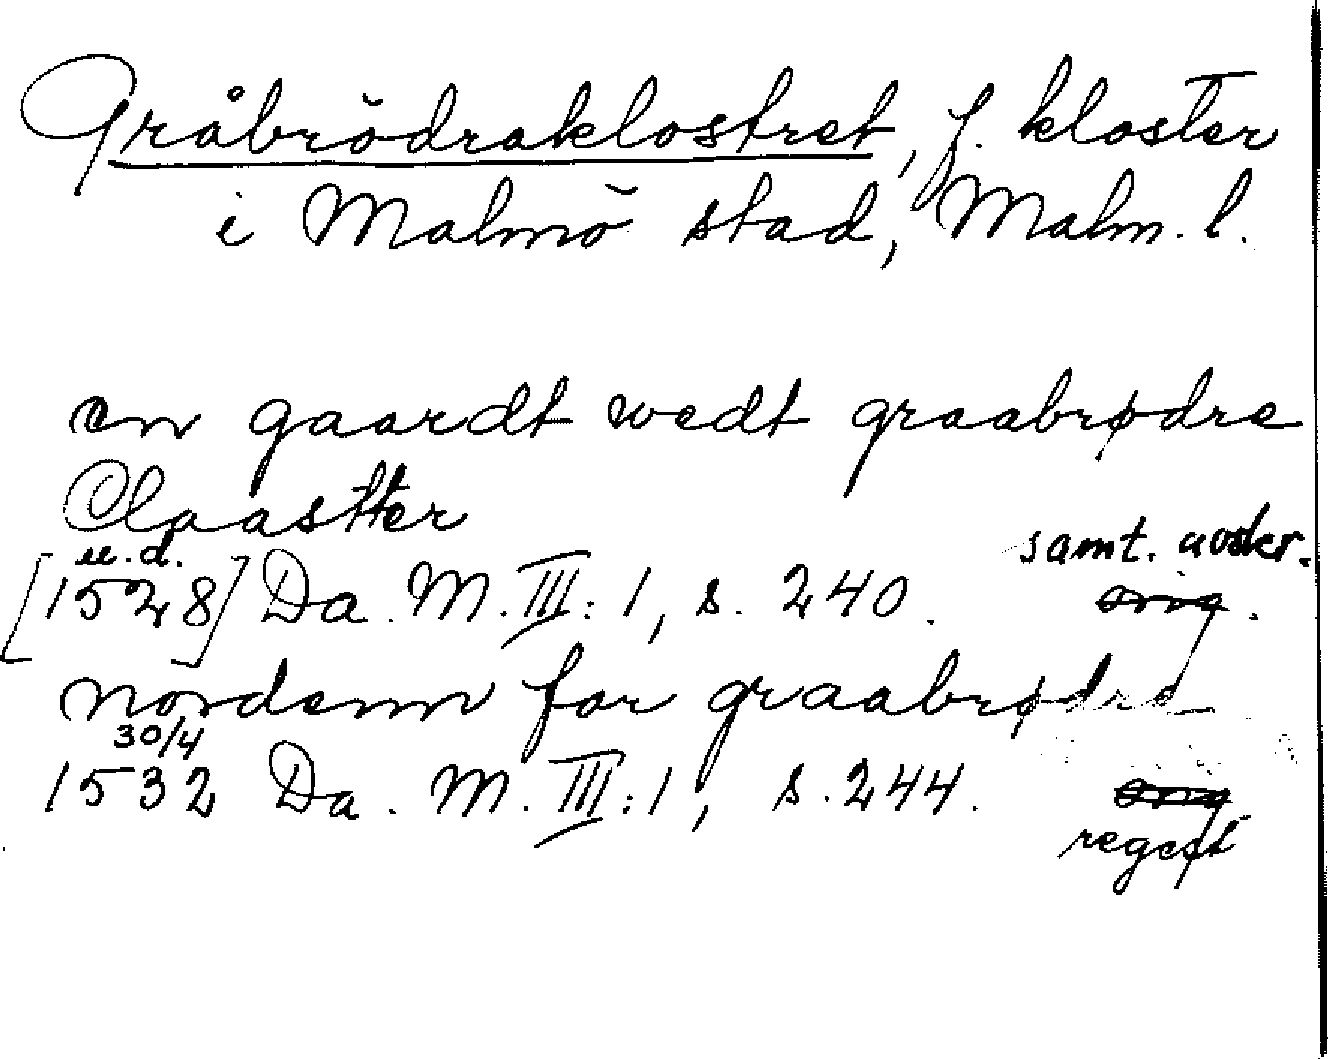 Gråbrödraklostret, f. kloster
i Malmö stad, Malm. l.
en gaardt wedt graabrødre
Claastter
u. d. samt. avskr.
[1528] Da. M. III: 1, s. 240. orig.
nordenn for graabrødre
30/4
1532 Da. M. III: 1, s. 244. orig
regest